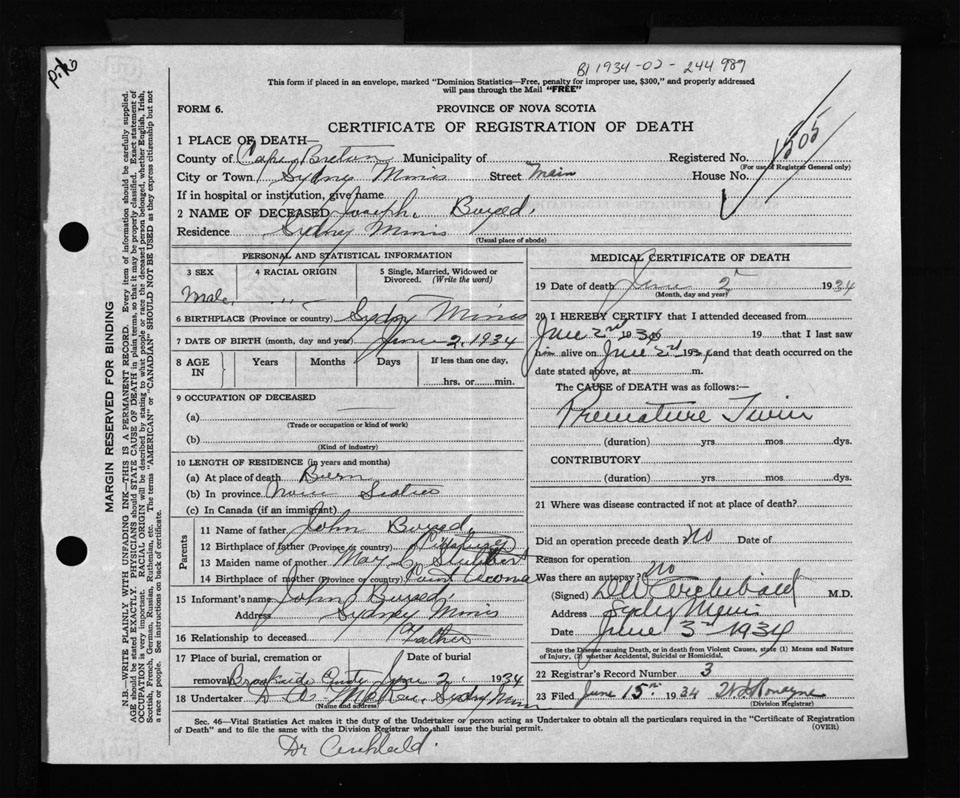 B1 1934-02-244987
This form if placed in an envelope, marked "Dominion Statistics—Free, penalty for improper use, $300," and properly addressed
will pass through the Mail "FREE"
FORM 6.
PROVINCE OF NOVA SCOTIA
CERTIFICATE OF REGISTRATION OF DEATH
1505
1 PLACE OF DEATH—
County of Cape Breton Municipality of
Registered No.
(For use of Registrar General only)
City or Town Sydney Mines Street Main House No.
If in hospital or institution, give name
2 NAME OF DECEASED Joseph
Residence Sydney Mines
(Usual place of abode)
PERSONAL AND STATISTICAL INFORMATION
3 SEX 4 RACIAL ORIGIN 5 Single, Married, Widowed or Divorced. (Write the word)
Male
6 BIRTHPLACE (Province or country) Sydney Mines
7 DATE OF BIRTH (month, day and year) June 2, 1934
8 AGE IN Years Months Days If less than one day,
hrs. or min.
9 OCCUPATION OF DECEASED
(a)
(Trade or occupation or kind of work)
(b)
(Kind of industry)
10 LENGTH OF RESIDENCE (in years and months)
(a) At place of death Born
(b) In province Nova Scotia
(c) In Canada (if an immigrant)
Parents
11 Name of father John
12 Birthplace of father (Province or country)
13 Maiden name of mother Mary
14 Birthplace of mother (Province or country) Point Aconi
15 Informant's name John
Address Sydney Mines
16 Relationship to deceased Father
17 Place of burial, cremation or Date of burial
removal Brookside June 2, 1934
18 Undertaker Sydney Mines
(Name and address)
MEDICAL CERTIFICATE OF DEATH
19 Date of death June 2 1934
(Month, day and year)
20 I HEREBY CERTIFY that I attended deceased from
June 2nd 1934 19 that I last saw
him alive on June 2nd 1934, and that death occurred on the
date stated above, at m.
The CAUSE of DEATH was as follows:—
Premature Twin
(duration) yrs mos dys.
CONTRIBUTORY
(duration) yrs mos dys.
21 Where was disease contracted if not at place of death?
Did an operation precede death No Date of
Reason for operation
Was there an autopsy? No
(Signed) Archibald M.D.
Address Sydney Mines
Date June 3rd 1934
State the Disease causing Death, or in death from Violent Causes, state (1) Means and Nature
of Injury, (2) whether Accidental, Suicidal or Homicidal.
22 Registrar's Record Number 3
23 Filed June 15 1934
(Division Registrar)
Sec. 46—Vital Statistics Act makes it the duty of the Undertaker or person acting as Undertaker to obtain all the particulars required in the "Certificate of Registration
of Death" and to file the same with the Division Registrar who shall issue the burial permit.
(OVER)
Dr Archibald.
MARGIN RESERVED FOR BINDING
N.B.—WRITE PLAINLY WITH UNFADING INK—THIS IS A PERMANENT RECORD. Every item of information should be carefully supplied.
AGE should be stated EXACTLY. PHYSICIANS should STATE CAUSE OF DEATH in plain terms, so that it may be properly classified. Exact statement of
OCCUPATION is very important. RACIAL ORIGIN will be described by stating to what people or race the deceased person belonged, whether English, Irish,
Scottish, French, German, Russian, Ruthenian, etc. The terms "AMERICAN" or "CANADIAN" SHOULD NOT BE USED as they express citizenship but not
a race or people. See instructions on back of certificate.